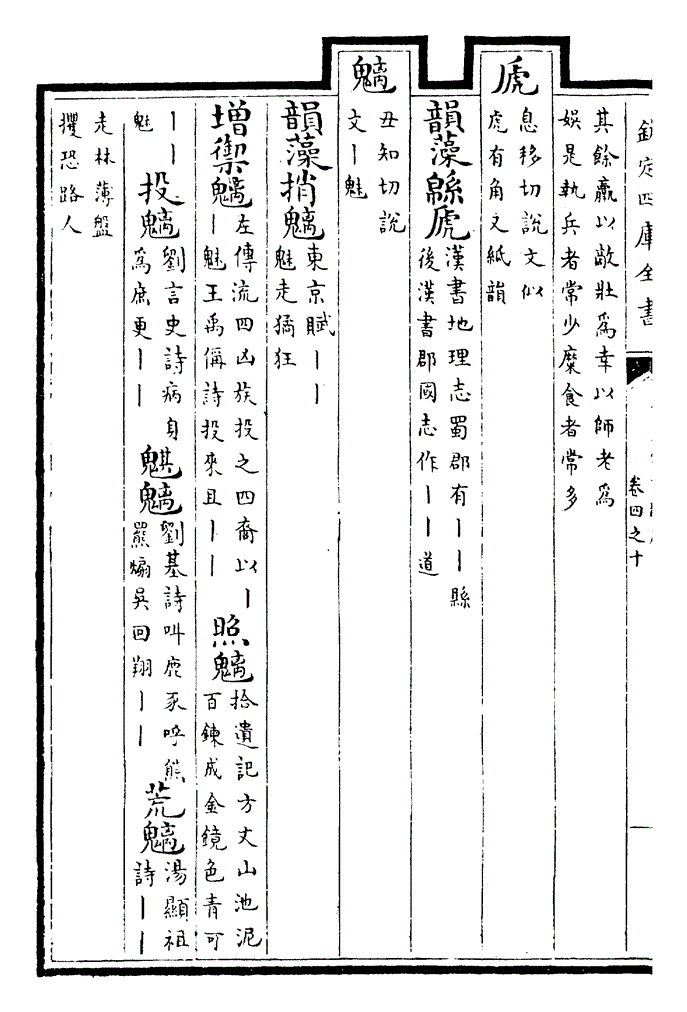 欽定四庫全書
卷四之十
其餘羸以敵壯爲幸以師老爲
娯是執兵者常少糜食者常多
虒
息移切說文似
虎有角又紙韻
韻藻緜虒
漢書地理志蜀郡有｜｜縣
後漢書郡國志作｜｜道
魑
丑知切說
文｜魅
韻藻捎魑
東京賦｜｜
魅走獝狂
增禦魑
左傳流四凶族投之四裔以｜
｜魅王禹偁詩投來且｜｜
照魑
拾遺記方丈山池泥
百鍊成金鏡色青可
｜｜
魅
投魑
劉言史詩病身
爲庶更｜｜
魌魑
劉基詩叫鹿豕呼熊
羆煽吳回翔｜｜
荒魑
湯顯祖
詩｜｜
走林薄盤
攫恐路人